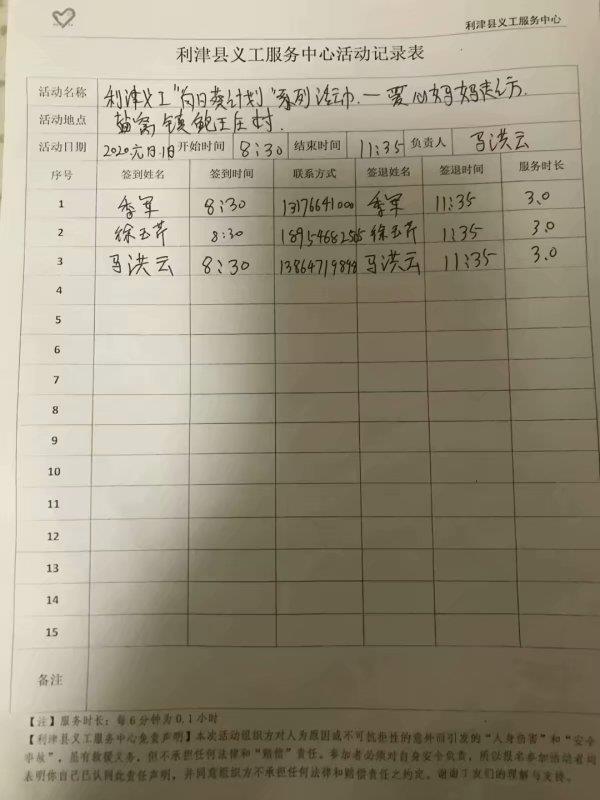 利津县义工服务中心
利津县义工服务中心活动记录表
活动名称 利津义工"向日葵计划"系列活动.一爱心妈妈走访.
活动地点 盐窝镇鲍王庄村.
活动日期 2020元月1日 开始时间 8:30 结束时间 11:35 负责人 马洪云
序号 签到姓名 签到时间 联系方式 签退姓名 签退时间 服务时长
1 季军 8:30 13176641000 季军 11:35 3.0
2 徐玉芹 8:30 18954682565 徐玉芹 11:35 3.0
3 马洪云 8:30 13864719898 马洪云 11:35 3.0
4
5
6
7
8
9
10
11
12
13
14
15
备注
【注】服务时长：每6分钟为0.1小时
【利津县义工服务中心免责声明】本次活动组织方对人为原因或不可抗拒性的意外而引发的"人身伤害"和"安全
事故"，虽有救援义务，但不承担任何法律和"赔偿"责任。参加者必须对自身安全负责，所以报名参加活动者均
表明你自己已认同此责任声明，并同意组织方不承担任何法律和赔偿责任之约定。谢谢了友们的理解与支持。